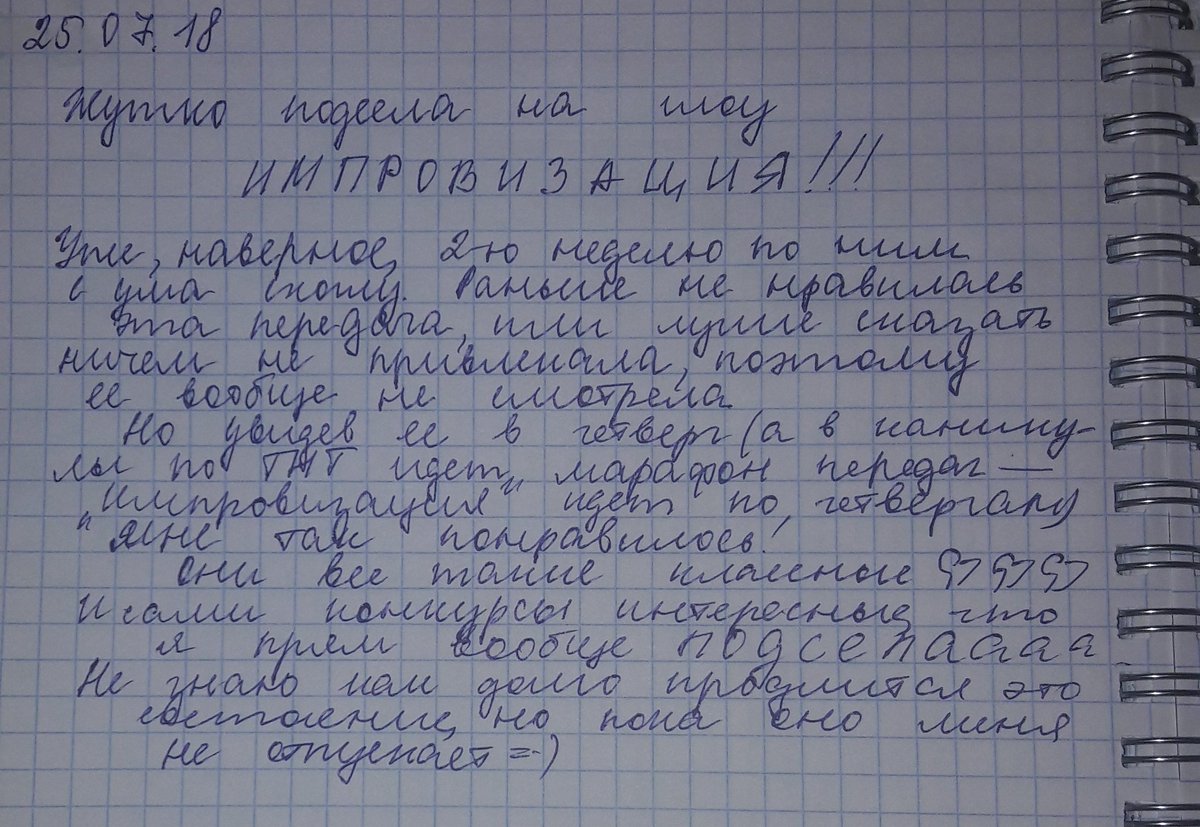 25.07.18
Жутко подсела на шоу
ИМПРОВИЗАЦИЯ!!!
Уже, наверное, 2-ю неделю по ним
с ума схожу. Раньше не нравилась
эта передача, или лучше сказать
ничем не привлекала, поэтому
ее вообще не смотрела
Но увидев ее в четверг (а в канику-
лы по ТНТ идет „марафон передач —
„импровизация" идет по четвергам)
мне так понравилось!
они все такие классные
И сами конкурсы интересные, что
я прям вообще ПОДСЕЛАаааа
Не знаю как долго продлится это
состояние, но пока оно меня
не отпускает =-)